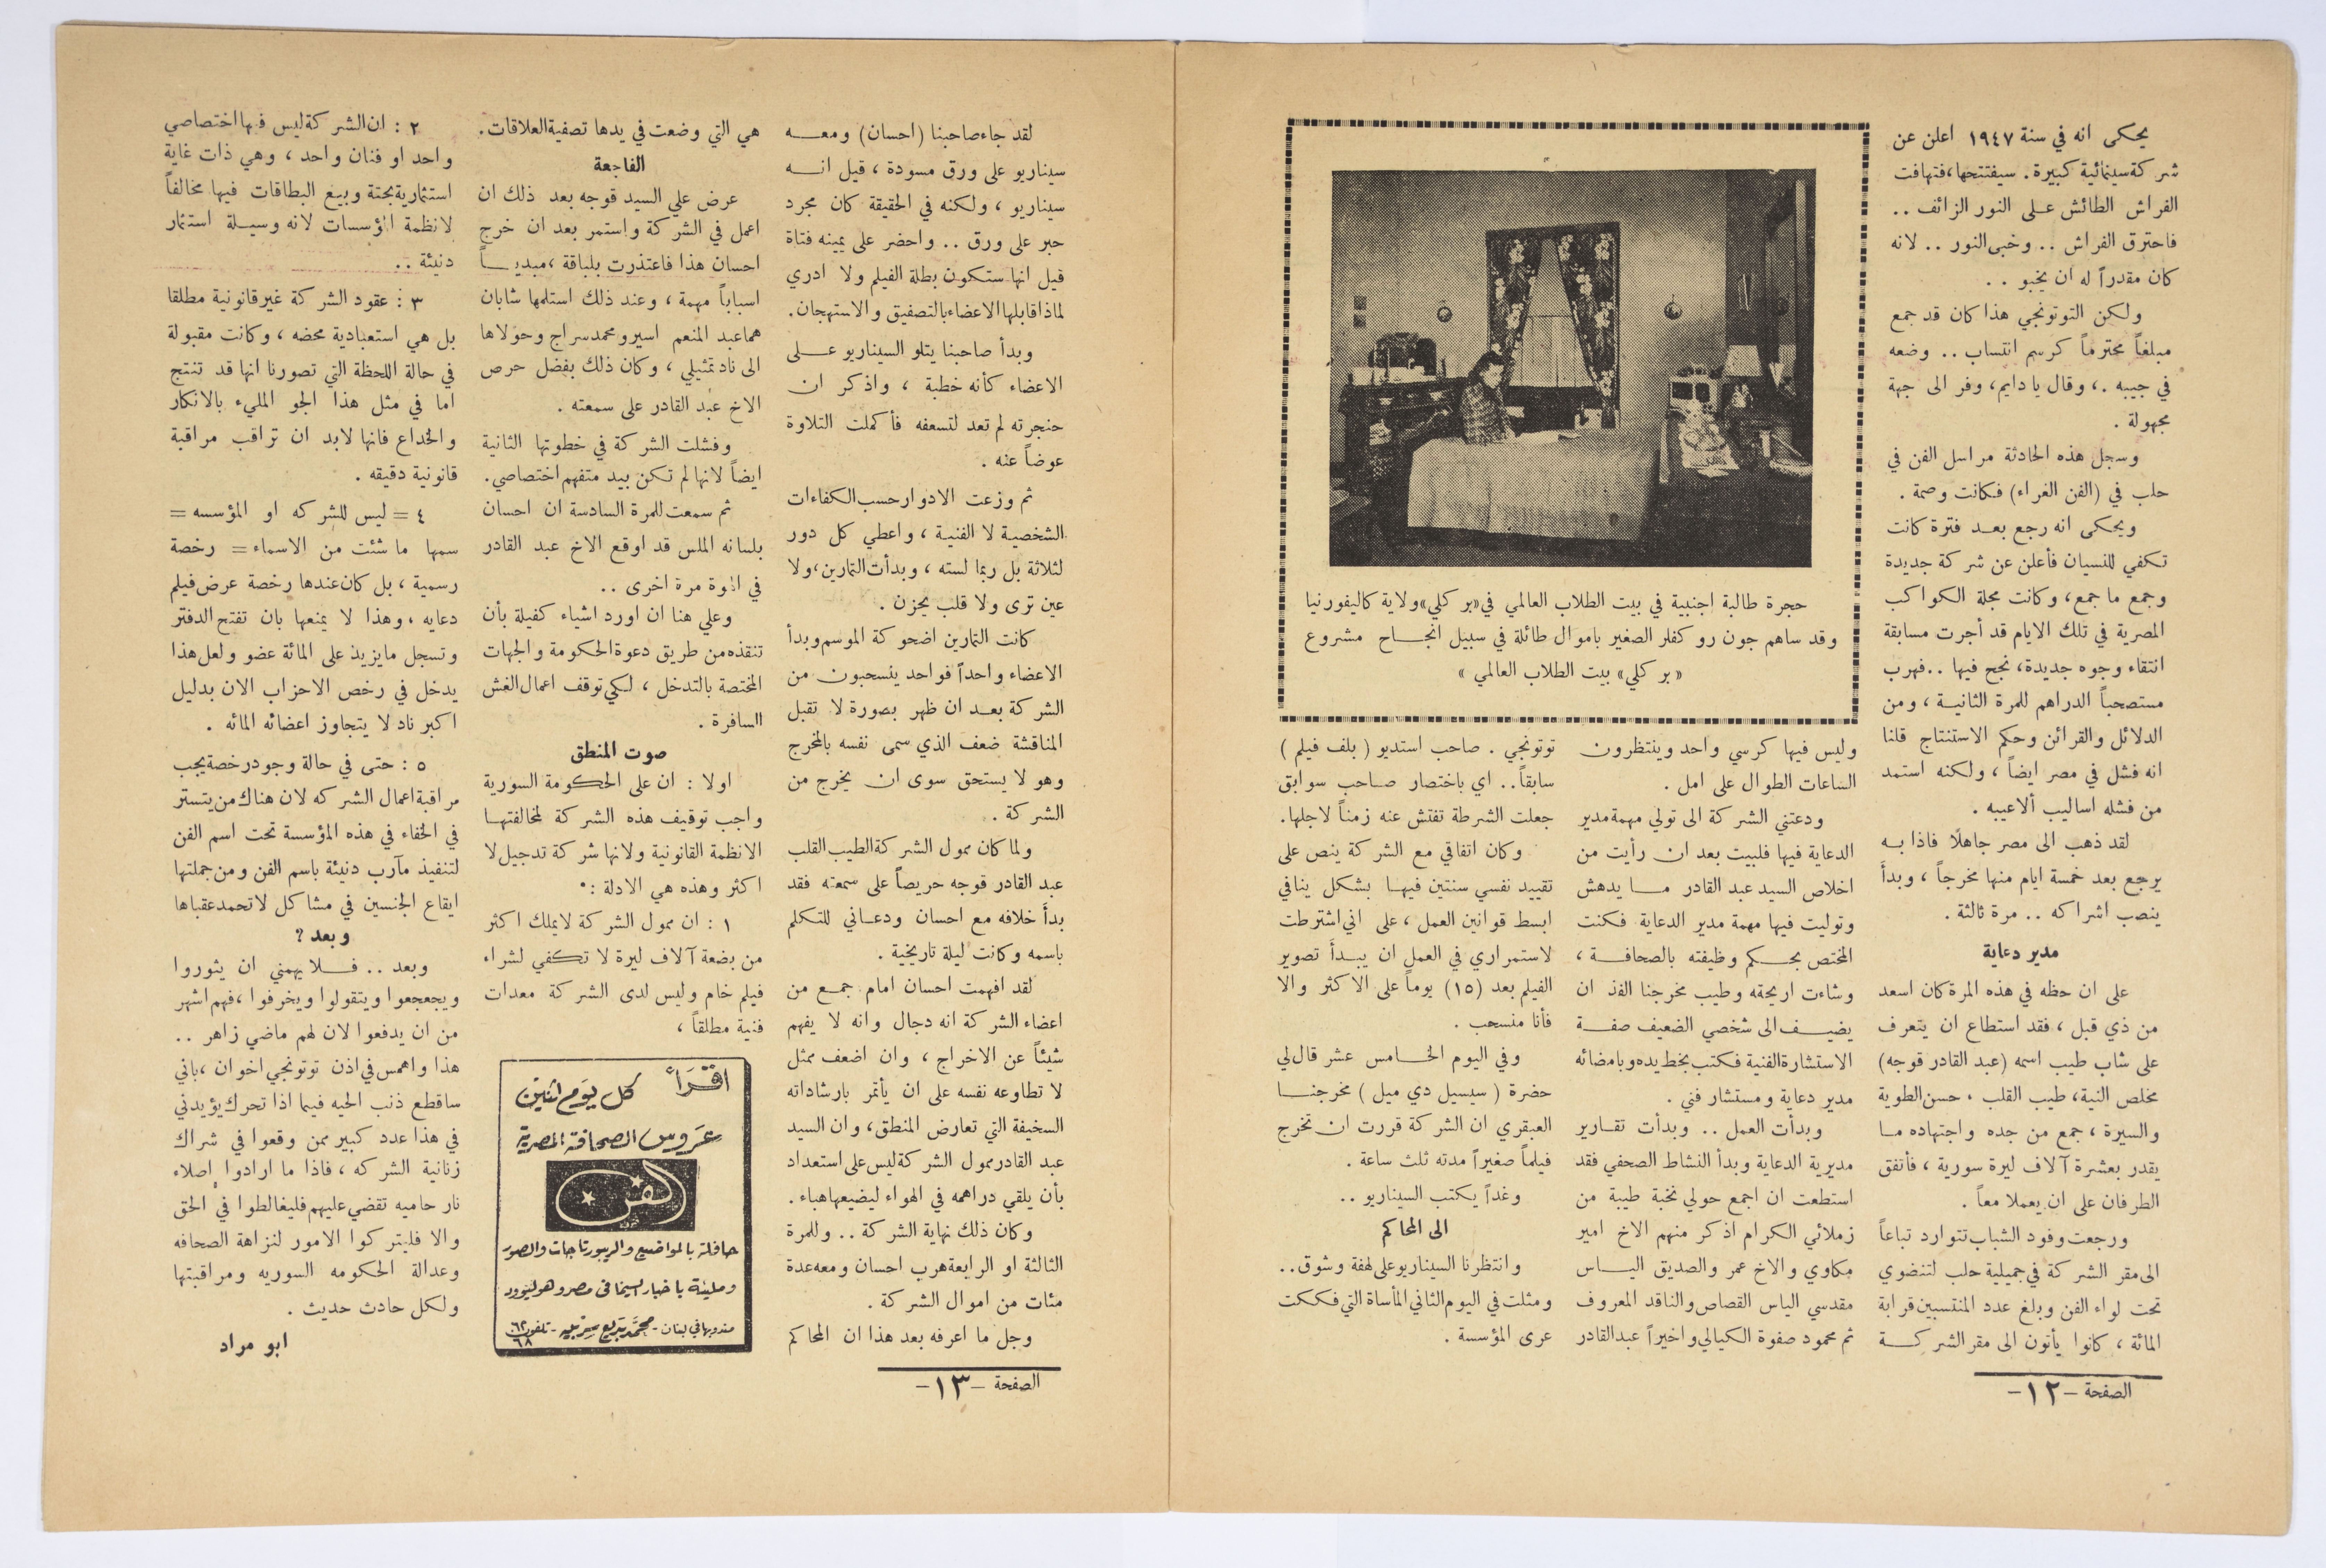 يحكى انه في سنة ١٩٤٧ اعلن عن
شركة سينمائية كبيرة . سيفتتحها ، فتهافت
الفراش الطائش على النور الزائف ..
فاحترق الفراش .. وخبى النور .. لانه
كان مقدراً له ان يخبو ..
ولكن التوتونجي هذا كان قد جمع
مبلغاً محترماً كرسم انتساب .. وضعه
في جيبه .، وقال يا دايم ، وفر الى جهة
مجهولة .
وسجل هذه الحادثة مراسل الفن في
حلب في (الفن الغراء) فكانت وصمة .
ويحكى انه رجع بعد فترة كانت
تكفي للنسيان فأعلن عن شركة جديدة
وجمع ما جمع ، وكانت مجلة الكواكب
المصرية في تلك الايام قد أجرت مسابقة
انتقاء وجوه جديدة ، نجح فيها .. فهرب
مستصحباً الدراهم للمرة الثانية ، ومن
الدلائل والقرائن وحكم الاستنتاج قلنا
انه فشل في مصر ايضاً ، ولكنه استمد
من فشله اساليب ألاعيبه .
لقد ذهب الى مصر جاهلًا فاذا به
يرجع بعد خمسة ايام منها مخرجاً ، وبدأ
ينصب اشراكه .. مرة ثالثة .
مدير دعاية
على ان حظه في هذه المرة كان اسعد
من ذي قبل ، فقد استطاع ان يتعرف
على شاب طيب اسمه (عبد القادر قوجه)
مخلص النية ، طيب القلب . حسن الطوية
والسيرة ، جمع من جده واجتهاده ما
يقدر بعشرة آلاف ليرة سورية ، فأتفق
الطرفان على ان يعملا معاً .
ورجعت وفود الشباب تتوارد تباعاً
الى مقر الشركة في جميلية حلب لتنضوي
تحت لواء الفن وبلغ عدد المنتسبين قرابة
المائة ، كانوا يأتون الى مقر الشركة
حجرة طالبة اجنبية في بيت الطلاب العالمي في «بركلي» ولاية كاليفورنيا
وقد ساهم جون روكفلر الصغير باموال طائلة في سبيل انجاح مشروع
«بركلي» بيت الطلاب العالمي »
وليس فيها كرسي واحد وينتظرون
الساعات الطوال على امل .
ودعتني الشركة الى تولي مهمة مدير
الدعاية فيها فلبيت بعد ان رأيت من
اخلاص السيد عبد القادر ما يدهش
وتوليت فيها مهمة مدير الدعاية فكنت
المختص بحكم وظيفته بالصحافة ،
وشاءت اريحيته وطيب مخرجنا الفذ ان
يضيف الى شخصي الضعيف صفة
الاستشارة الفنية فكتب بخط يده وبامضائه
مدير دعاية ومستشار فني .
وبدأت العمل .. وبدأت تقارير
مديرية الدعاية وبدأ النشاط الصحفي فقد
استطعت ان اجمع حولي نخبة طيبة من
زملائي الكرام اذكر منهم الاخ امير
مكاوي والاخ عمر والصديق الياس
مقدسي الياس القصاص والناقد المعروف
ثم محمود صفوة الكيالي واخيراً عبد القادر
توتونجي . صاحب استديو ( بلف فيلم )
سابقاً .. اي باختصار صاحب سوابق
جعلت الشرطة تفتش عنه زمناً لاجلها .
وكان اتفاقي مع الشركة ينص على
تقييد نفسي سنتين فيها بشكل ينافي
ابسط قوانين العمل ، على اني اشترطت
لاستمراري في العمل ان يبدأ تصوير
الفيلم بعد (١٥) يوماً على الاكثر والا
فأنا منسحب .
وفي اليوم الخامس عشر قال لي
حضرة ( سيسيل دي ميل ) مخرجنا
العبقري ان الشركة قررت ان تخرج
فيلماً صغيراً مدته ثلث ساعة .
وغداً يكتب السيناريو ..
الى المحاكم
وانتظرنا السيناريو على لهفة وشوق ..
ومثلت في اليوم الثاني المأساة التي فككت
عرى المؤسسة .
الصفحة -١٢-
لقد جاء صاحبنا (احسان) ومعه
سيناريو على ورق مسودة ، قيل انه
سيناريو ، ولكنه في الحقيقة كان مجرد
حبر على ورق .. واحضر على يمينه فتاة
قيل انها ستكون بطلة الفيلم ولا ادري
لماذا قابلها الاعضاء بالتصفيق والاستهجان .
وبدأ صاحبنا يتلو السيناريو على
الاعضاء كأنه خطبة ، واذكر ان
حنجرته لم تعد لتسعفه فأكملت التلاوة
عوضاً عنه .
ثم وزعت الادوار حسب الكفاءات
الشخصية لا الفنية ، واعطي كل دور
لثلاثة بل ربما لسته ، وبدأت التمارين ، ولا
عين ترى ولا قلب يحزن .
كانت التمارين اضحوكة الموسم وبدأ
الاعضاء واحداً فواحد ينسحبون من
الشركة بعد ان ظهر بصورة لا تقبل
المناقشة ضعف الذي سمى نفسه بالمخرج
وهو لا يستحق سوى ان يخرج من
الشركة .
ولما كان ممول الشركة الطيب القلب
عبد القادر قوجه حريصاً على سمعته فقد
بدأ خلافه مع احسان ودعاني للتكلم
باسمه وكانت ليلة تاريخية .
لقد افهمت احسان امام جمع من
اعضاء الشركة انه دجال وانه لا يفهم
شيئاً عن الاخراج ، وان اضعف ممثل
لا تطاوعه نفسه على ان يأتمر بارشاداته
السخيفة التي تعارض المنطق ، وان السيد
عبد القادر ممول الشركة ليس على استعداد
بأن يلقي دراهمه في الهواء ليضيعها هباء .
وكان ذلك نهاية الشركة .. وللمرة
الثالثة او الرابعة هرب احسان ومعه عدة
مئات من اموال الشركة .
وجل ما اعرفه بعد هذا ان المحاكم
هي التي وضعت في يدها تصفية العلاقات .
الفاجعة
عرض علي السيد قوجه بعد ذلك ان
اعمل في الشركة واستمر بعد ان خرج
احسان هذا فاعتذرت بلباقة ، مبدياً
اسباباً مهمة ، وعند ذلك استلمها شابان
هما عبد المنعم اسير ومحمد سراج وحولاها
الى ناد تمثيلي ، وكان ذلك بفضل حرص
الاخ عبد القادر على سمعته .
وفشلت الشركة في خطوتها الثانية
ايضاً لانها لم تكن بيد متفهم اختصاصي .
ثم سمعت للمرة السادسة ان احسان
بلسانه الملس قد اوقع الاخ عبد القادر
في الهوة مرة اخرى ..
وعلي هنا ان اورد اشياء كفيلة بأن
تنقذه من طريق دعوة الحكومة والجهات
المختصة بالتدخل ، لكي توقف اعمال الغش
السافرة .
صوت المنطق
اولا : ان على الحكومة السورية
واجب توقيف هذه الشركة لمخالفتها
الانظمة القانونية ولانها شركة تدجيل لا
اكثر وهذه هي الادلة :
١ : ان ممول الشركة لا يملك اكثر
من بضعة آلاف ليرة لا تكفي لشراء
فيلم خام وليس لدى الشركة معدات
فنية مطلقاً ،
اقرأ كل يوم اثنين
عروس الصحافة المصرية
الفن
حافلة بالمواضيع والريبورتاجات والصور
ومليئة باخبار السينما في مصر وهوليوود
مندوبها في لبنان - محمد بديع سربيه - تلفون ٦٢
٦٨
٢ : ان الشركة ليس فيها اختصاصي
واحد او فنان واحد ، وهي ذات غاية
استثمارية بحتة وبيع البطاقات فيها مخالفاً
لانظمة المؤسسات لانه وسيلة استثمار
دنيئة ..
٣ : عقود الشركة غير قانونية مطلقا
بل هي استعبادية محضه ، وكانت مقبولة
في حالة اللحظة التي تصورنا انها قد تنتج
اما في مثل هذا الجو المليء بالانكار
والخداع فانها لابد ان تراقب مراقبة
قانونية دقيقه .
٤ = ليس للشركه او المؤسسه =
سمها ما شئت من الاسماء = رخصة
رسمية ، بل كان عندها رخصة عرض فيلم
دعايه ، وهذا لا يمنعها بان تفتح الدفتر
وتسجل ما يزيد على المائة عضو ولعل هذا
يدخل في رخص الاحزاب الان بدليل
اكبر ناد لا يتجاوز اعضائه المائه .
٥ : حتى في حالة وجود رخصة يجب
مراقبة اعمال الشركه لان هناك من يتستر
في الخفاء في هذه المؤسسة تحت اسم الفن
لتنفيذ مآرب دنيئة باسم الفن ومن جملتها
ايقاع الجنسين في مشاكل لا تحمد عقباها
وبعد ؟
وبعد .. فلا يهمني ان يثوروا
ويجعجعوا ويتقولوا ويخرفوا ، فهم اشهر
من ان يدفعوا لان لهم ماضي زاهر ..
هذا واهمس في اذن توتونجي اخوان ، باني
ساقطع ذنب الحيه فيما اذا تحرك يؤيدني
في هذا عدد كبير ممن وقعوا في شراك
زنانية الشركه ، فاذا ما ارادوا إصلاء
نار حاميه تقضي عليهم فليغالطوا في الحق
والا فليتركوا الامور لنزاهة الصحافه
وعدالة الحكومه السوريه ومراقبتها
ولكل حادث حديث .
ابو مراد
الصفحة -١٣-